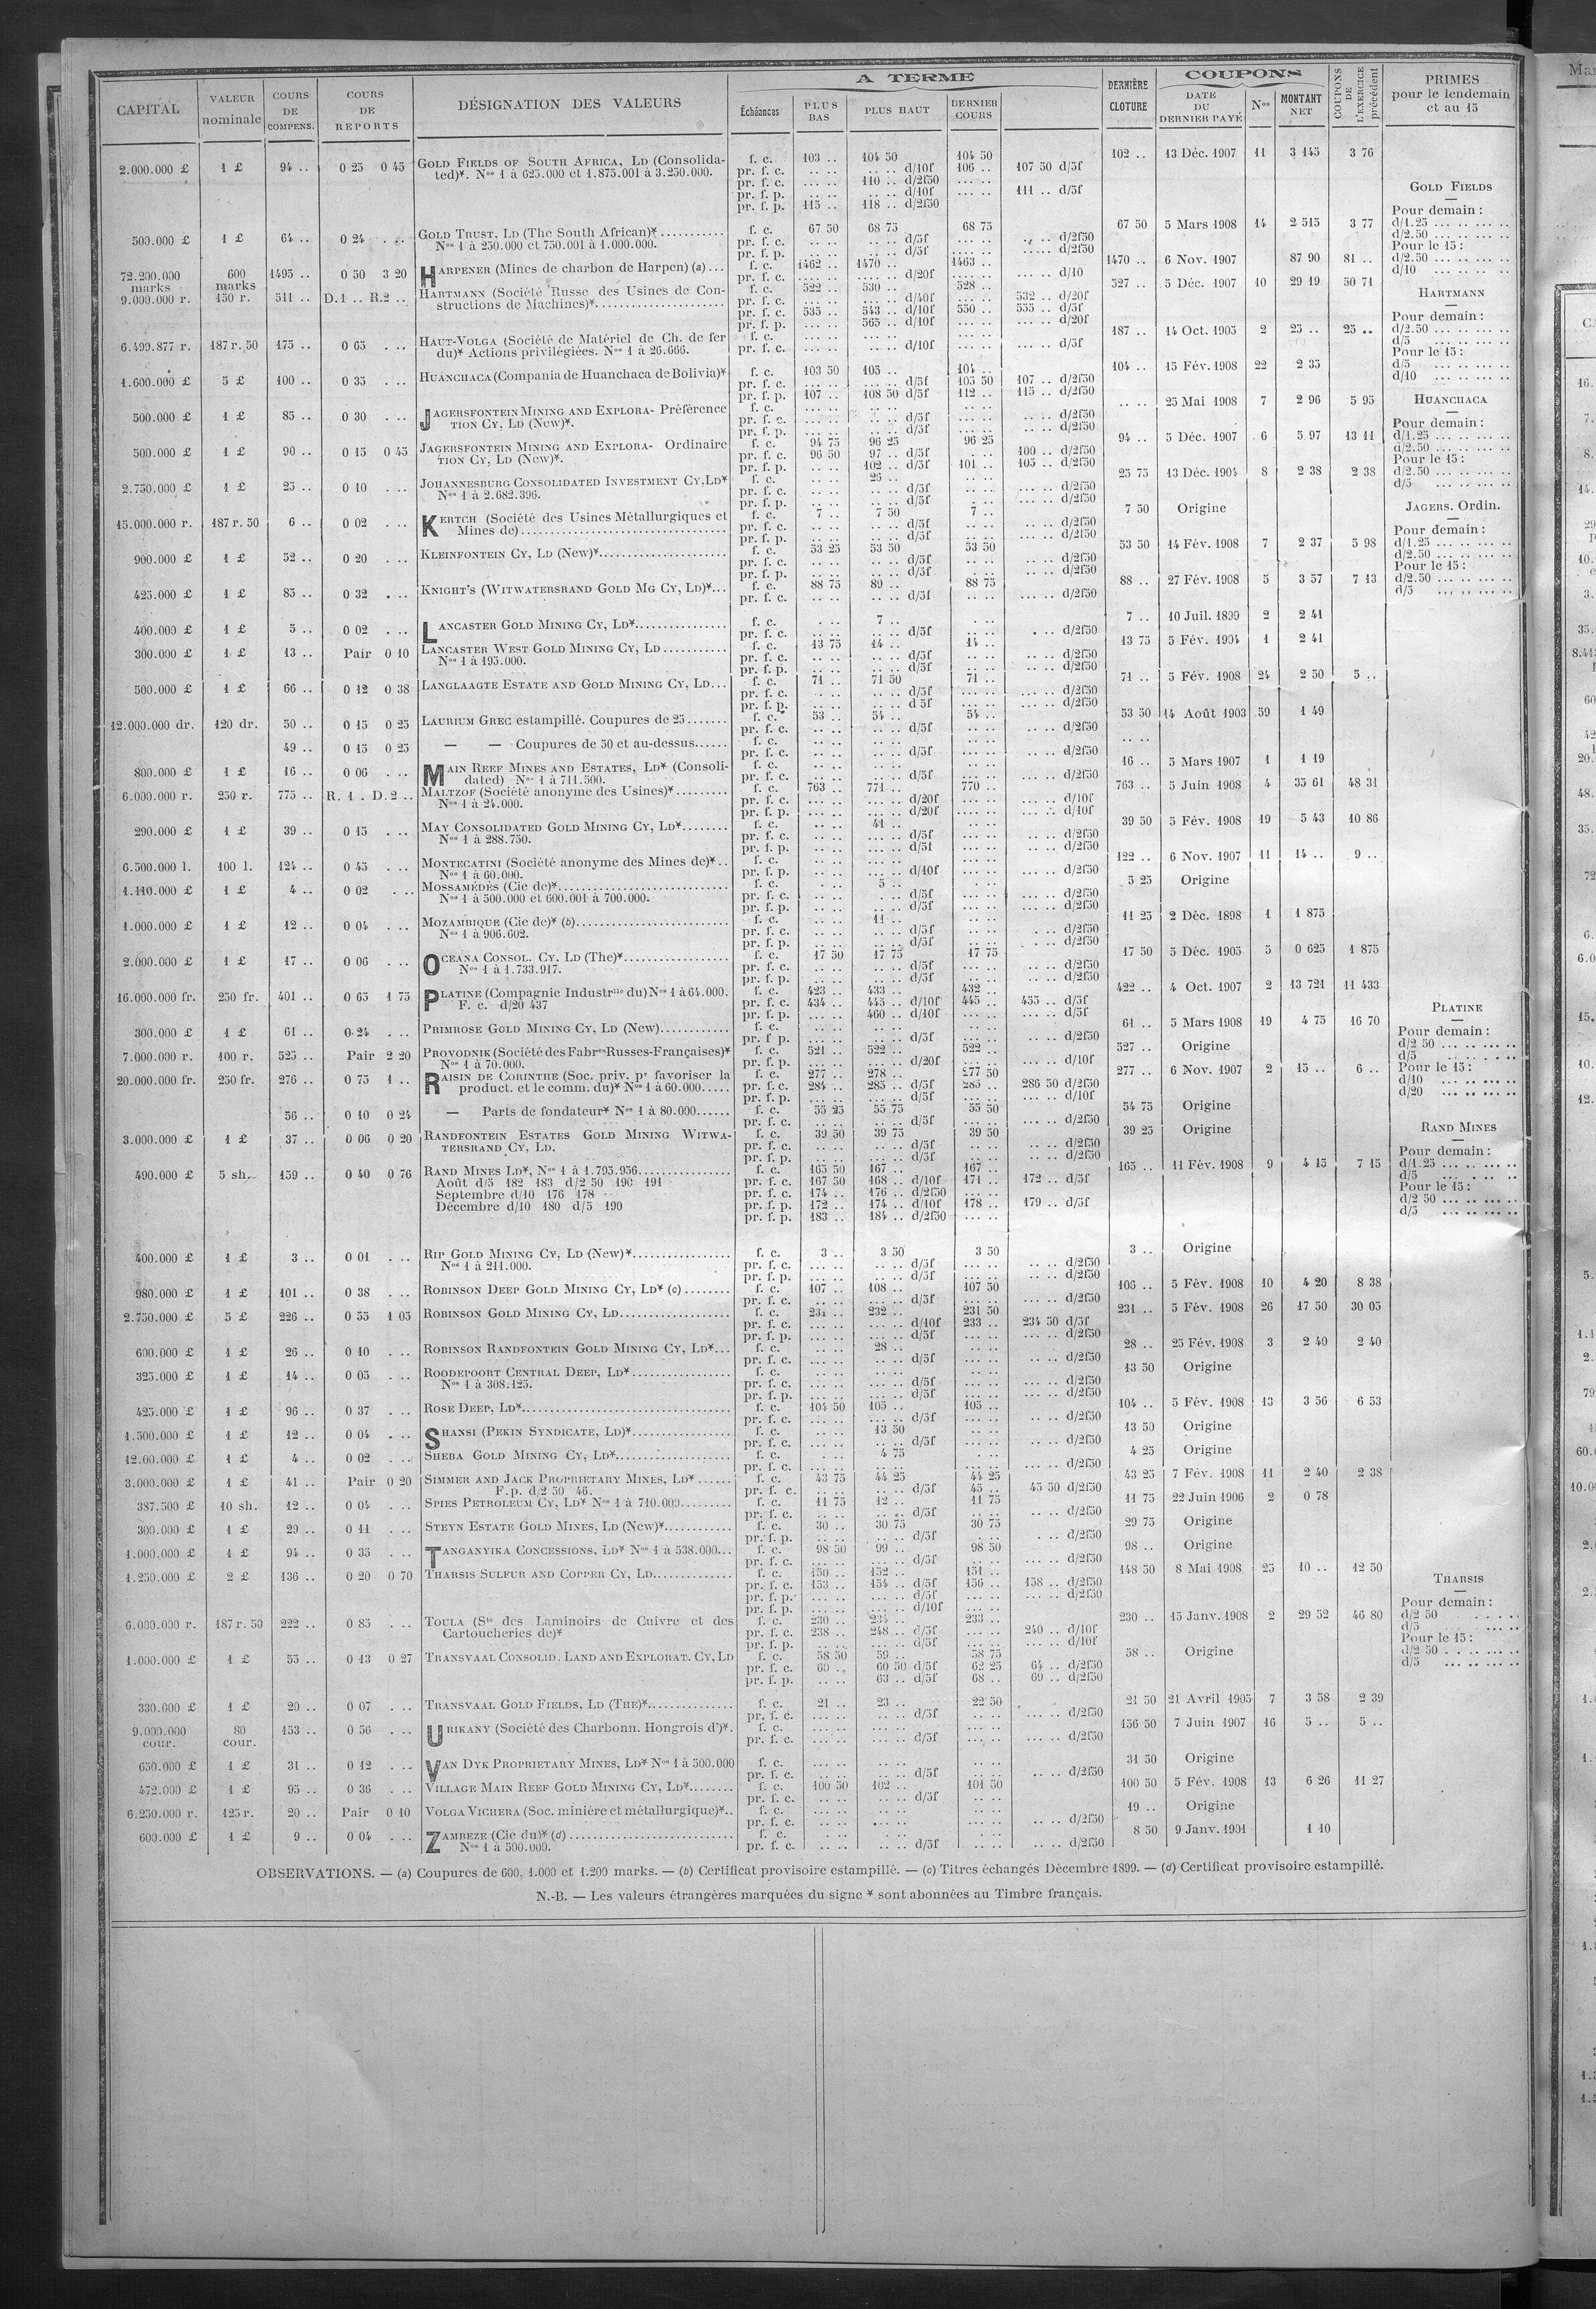 A TERME
COUPONS
CAPITAL | VALEUR nominale | COURS DE COMPENS. | COURS DE REPORTS | DÉSIGNATION DES VALEURS | Échéances | PLUS BAS | PLUS HAUT | DERNIER COURS | DERNIÈRE CLOTURE | DATE DU DERNIER PAYÉ | Nos | MONTANT NET | COUPONS DE L'EXERCICE précédent | PRIMES pour le lendemain et au 15
2.000.000 £ 1 £ 94 .. 0 25 0 45 GOLD FIELDS OF SOUTH AFRICA, LD (Consolida- f. c. 103 .. 104 50 104 50 102 .. 13 Déc. 1907 11 3 145 3 76
ted)*. Nos 1 à 625.000 et 1.875.001 à 3.250.000. pr. f. c. .. .. .. .. d/10f 106 .. 107 50 d/5f
pr. f. c. .. .. 110 .. d/2f50 .. ..
pr. f. p. .. .. .. .. d/10f .. .. 111 .. d/5f
pr. f. p. 115 .. 118 .. d/2f50
500.000 £ 1 £ 64 .. 0 24 . .. GOLD TRUST, LD (The South African)* f. c. 67 50 68 75 68 75 67 50 5 Mars 1908 14 2 515 3 77
Nos 1 à 250.000 et 750.001 à 1.000.000. pr. f. c. .. .. .. .. d/5f .. .. .. .. d/2f50
pr. f. p. .. .. .. .. d/5f .. .. .. .. d/2f50
72.200.000 marks 600 marks 1495 .. 0 50 3 20 HARPENER (Mines de charbon de Harpen) (a) ... f. c. 1462 .. 1470 .. 1463 .. 1470 .. 6 Nov. 1907 87 90 81 ..
pr. f. c. .. .. .. .. d/20f .. .. .. .. d/10
9.000.000 r. 150 r. 511 .. D.1 .. R.2 .. HARTMANN (Société Russe des Usines de Con- f. c. 522 .. 530 .. 528 .. 527 .. 5 Déc. 1907 10 29 19 50 71
structions de Machines)* pr. f. c. .. .. .. .. d/40f .. .. 532 .. d/20f
pr. f. c. 535 .. 543 .. d/10f 550 .. 555 .. d/5f
pr. f. p. .. .. 565 .. d/10f .. .. .. .. d/20f
6.499.877 r. 187 r. 50 175 .. 0 65 . .. HAUT-VOLGA (Société de Matériel de Ch. de fer f. c. .. .. 187 .. 14 Oct. 1905 2 25 .. 25 ..
du)* Actions privilégiées. Nos 1 à 26.666. pr. f. c. .. .. .. .. d/10f .. .. .. .. d/5f
1.600.000 £ 5 £ 100 .. 0 35 . .. HUANCHACA (Compania de Huanchaca de Bolivia)* f. c. 103 50 105 .. 104 .. 104 .. 15 Fév. 1908 22 2 35
pr. f. c. .. .. .. .. d/5f 105 50 107 .. d/2f50
pr. f. p. 107 .. 108 50 d/5f 112 .. 115 .. d/2f50
500.000 £ 1 £ 85 .. 0 30 . .. JAGERSFONTEIN MINING AND EXPLORA- Préférence f. c. .. .. .. .. 25 Mai 1908 7 2 96 5 95
TION CY, LD (New)*. pr. f. c. .. .. .. .. d/5f .. .. .. .. d/2f50
pr. f. p. .. .. .. .. d/5f .. .. .. .. d/2f50
500.000 £ 1 £ 90 .. 0 15 0 45 JAGERSFONTEIN MINING AND EXPLORA- Ordinaire f. c. 94 75 96 25 96 25 94 .. 5 Déc. 1907 6 5 97 13 11
TION CY, LD (New)*. pr. f. c. 96 50 97 .. d/5f .. .. 100 .. d/2f50
pr. f. p. .. .. 102 .. d/5f 101 .. 105 .. d/2f50
2.750.000 £ 1 £ 25 .. 0 10 . .. JOHANNESBURG CONSOLIDATED INVESTMENT CY, LD* f. c. .. .. 26 .. .. .. 25 75 13 Déc. 1904 8 2 38 2 38
Nos 1 à 2.682.396. pr. f. c. .. .. .. .. d/5f .. .. .. .. d/2f50
pr. f. p. .. .. .. .. d/5f .. .. .. .. d/2f50
15.000.000 r. 187 r. 50 6 .. 0 02 . .. KERTCH (Société des Usines Métallurgiques et f. c. 7 .. 7 50 7 .. 7 50 Origine
Mines de) pr. f. c. .. .. .. .. d/5f .. .. .. .. d/2f50
pr. f. p. .. .. .. .. d/5f .. .. .. .. d/2f50
900.000 £ 1 £ 52 .. 0 20 . .. KLEINFONTEIN CY, LD (New)* f. c. 53 25 53 50 53 50 53 50 14 Fév. 1908 7 2 37 5 98
pr. f. c. .. .. .. .. d/5f .. .. .. .. d/2f50
pr. f. p. .. .. .. .. d/5f .. .. .. .. d/2f50
425.000 £ 1 £ 85 .. 0 32 . .. KNIGHT'S (WITWATERSRAND GOLD MG CY, LD)* ... f. c. 88 75 89 .. 88 75 88 .. 27 Fév. 1908 5 3 57 7 13
pr. f. c. .. .. .. .. d/5f .. .. .. .. d/2f50
400.000 £ 1 £ 5 .. 0 02 . .. LANCASTER GOLD MINING CY, LD* f. c. . .. 7 .. . .. 7 .. 10 Juil. 1899 2 2 41
pr. f. c. .. .. .. .. d/5f .. .. .. .. d/2f50
300.000 £ 1 £ 13 .. Pair 0 10 LANCASTER WEST GOLD MINING CY, LD f. c. 13 75 14 .. 14 .. 13 75 5 Fév. 1904 1 2 41
Nos 1 à 195.000. pr. f. c. .. .. .. .. d/5f .. .. .. .. d/2f50
pr. f. p. .. .. .. .. d/5f .. .. .. .. d/2f50
500.000 £ 1 £ 66 .. 0 12 0 38 LANGLAAGTE ESTATE AND GOLD MINING CY, LD ... f. c. 71 .. 71 50 71 .. 71 .. 5 Fév. 1908 24 2 50 5 ..
pr. f. c. .. .. .. .. d/5f .. .. .. .. d/2f50
pr. f. p. .. .. .. .. d 5f .. .. .. .. d/2f50
12.000.000 dr. 120 dr. 50 .. 0 15 0 25 LAURIUM GREC estampillé. Coupures de 25 f. c. 53 .. 54 .. 54 .. 53 50 14 Août 1903 59 1 49
pr. f. c. .. .. .. .. d/5f .. .. .. .. d/2f50
49 .. 0 15 0 25 — — Coupures de 50 et au-dessus f. c. .. .. .. .. .. ..
pr. f. c. .. .. .. .. d/5f .. .. .. .. d/2f50
800.000 £ 1 £ 16 .. 0 06 . .. MAIN REEF MINES AND ESTATES, LD* (Consoli- f. c. .. .. 16 .. 5 Mars 1907 1 1 19
dated) Nos 1 à 711.500. pr. f. c. .. .. .. .. d/5f .. .. .. .. d/2f50
6.000.000 r. 250 r. 775 .. R. 1 . D. 2 .. MALTZOF (Société anonyme des Usines)* f. c. 763 .. 771 .. 770 .. 763 .. 5 Juin 1908 4 35 61 48 31
Nos 1 à 24.000. pr. f. c. .. .. .. .. d/20f .. .. .. .. d/10f
pr. f. p. .. .. .. .. d/20f .. .. .. .. d/10f
290.000 £ 1 £ 39 .. 0 15 . .. MAY CONSOLIDATED GOLD MINING CY, LD* f. c. .. .. 41 .. .. .. 39 50 5 Fév. 1908 19 5 43 10 86
Nos 1 à 288.750. pr. f. c. .. .. .. .. d/5f .. .. .. .. d/2f50
pr. f. p. .. .. .. .. d/5f .. .. .. .. d/2f50
6.500.000 l. 100 l. 124 .. 0 45 . .. MONTECATINI (Société anonyme des Mines de)* .. f. c. .. .. 122 .. 6 Nov. 1907 11 14 .. 9 ..
Nos 1 à 60.000. pr. f. p. .. .. .. .. d/10f .. .. .. .. d/2f50
1.110.000 £ 1 £ 4 .. 0 02 . .. MOSSAMÉDÈS (Cie de)* f. c. . .. 5 .. . .. 5 25 Origine
Nos 1 à 500.000 et 600.001 à 700.000. pr. f. c. .. .. .. .. d/5f .. .. .. .. d/2f50
pr. f. p. .. .. .. .. d/5f .. .. .. .. d/2f50
1.000.000 £ 1 £ 12 .. 0 04 . .. MOZAMBIQUE (Cie de)* (b) f. c. .. .. 11 .. .. .. 11 25 2 Déc. 1898 1 1 875
Nos 1 à 906.602. pr. f. c. .. .. .. .. d/5f .. .. .. .. d/2f50
pr. f. p. .. .. .. .. d/5f .. .. .. .. d/2f50
2.000.000 £ 1 £ 17 .. 0 06 . .. OCEANA CONSOL. CY, LD (The)* f. c. 17 50 17 75 17 75 17 50 5 Déc. 1905 5 0 625 1 875
Nos 1 à 1.733.917. pr. f. c. .. .. .. .. d/5f .. .. .. .. d/2f50
pr. f. p. .. .. .. .. d/5f .. .. .. .. d/2f50
16.000.000 fr. 250 fr. 401 .. 0 65 1 75 PLATINE (Compagnie Industrlle du) Nos 1 à 64.000. f. c. 423 .. 433 .. 432 .. 422 .. 4 Oct. 1907 2 13 721 11 433
F. c. d/20 437 pr. f. c. 434 .. 445 .. d/10f 445 .. 455 .. d/5f
pr. f. p. .. .. 460 .. d/10f .. .. .. .. d/5f
300.000 £ 1 £ 61 .. 0 24 . .. PRIMROSE GOLD MINING CY, LD (New) f. c. .. .. 61 .. 5 Mars 1908 19 4 75 16 70
pr. f p. .. .. .. .. d/5f .. .. .. .. d/2f50
7.000.000 r. 100 r. 525 .. Pair 2 20 PROVODNIK (Société des Fabres Russes-Françaises)* f. c. 521 .. 522 .. 522 .. 527 .. Origine
Nos 1 à 70.000. pr. f. p. .. .. .. .. d/20f .. .. .. .. d/10f
20.000.000 fr. 250 fr. 276 .. 0 75 1 .. RAISIN DE CORINTHE (Soc. priv. pr favoriser la f. c. 277 .. 278 .. 277 50 277 .. 6 Nov. 1907 2 15 .. 6 ..
product. et le comm. du)* Nos 1 à 60.000 pr. f. c. 284 .. 285 .. d/5f 285 .. 286 50 d/2f50
pr. f. p. .. .. .. .. d/5f .. .. .. .. d/10f
56 .. 0 10 0 24 — Parts de fondateur* Nos 1 à 80.000 f. c. 55 25 55 75 55 50 54 75 Origine
pr. f. c. .. .. .. .. d/5f .. .. .. .. d/2f50
3.000.000 £ 1 £ 37 .. 0 06 0 20 RANDFONTEIN ESTATES GOLD MINING WITWA- f. c. 39 50 39 75 39 50 39 25 Origine
TERSRAND CY, LD. pr. f. c. .. .. .. .. d/5f .. .. .. .. d/2f50
pr. f. p. .. .. .. .. d/5f .. .. .. .. d/2f50
490.000 £ 5 sh. 159 .. 0 40 0 76 RAND MINES LD*, Nos 1 à 1.795.956 f. c. 165 50 167 .. 167 .. 165 .. 11 Fév. 1908 9 4 15 7 15
Août d/5 182 183 d/2 50 190 191 pr. f. c. 167 50 168 .. d/10f 171 .. 172 .. d/5f
Septembre d/10 176 178 pr. f. c. 174 .. 176 .. d/2f50 .. ..
Décembre d/10 180 d/5 190 pr. f. p. 172 .. 174 .. d/10f 178 .. 179 .. d/5f
pr. f. p. 183 .. 184 .. d/2f50 .. ..
400.000 £ 1 £ 3 .. 0 01 . .. RIP GOLD MINING CY, LD (New)* f. c. 3 .. 3 50 3 50 3 .. Origine
Nos 1 à 211.000. pr. f. c. .. .. .. .. d/5f .. .. .. .. d/2f50
pr. f. p. .. .. .. .. d/5f .. .. .. .. d/2f50
980.000 £ 1 £ 101 .. 0 38 . .. ROBINSON DEEP GOLD MINING CY, LD* (c) f. c. 107 .. 108 .. 107 50 106 .. 5 Fév. 1908 10 4 20 8 38
pr. f. c. .. .. .. .. d/5f .. .. .. .. d/2f50
2.750.000 £ 5 £ 226 .. 0 55 1 05 ROBINSON GOLD MINING CY, LD f. c. 231 .. 232 .. 231 50 231 .. 5 Fév. 1908 26 17 50 30 05
pr. f. c. .. .. .. .. d/10f 233 .. 234 50 d/5f
pr. f. p. .. .. .. .. d/5f .. .. .. .. d/2f50
600.000 £ 1 £ 26 .. 0 10 . .. ROBINSON RANDFONTEIN GOLD MINING CY, LD* ... f. c. .. .. 28 .. .. .. 28 .. 25 Fév. 1908 3 2 40 2 40
pr. f. c. .. .. .. .. d/5f .. .. .. .. d/2f50
325.000 £ 1 £ 14 .. 0 05 . .. ROODEPOORT CENTRAL DEEP, LD* f. c. .. .. 13 50 Origine
Nos 1 à 308.125. pr. f. c. .. .. .. .. d/5f .. .. .. .. d/2f50
pr. f. p. .. .. .. .. d/5f .. .. .. .. d/2f50
425.000 £ 1 £ 96 .. 0 37 . .. ROSE DEEP, LD* f. c. 104 50 105 .. 105 .. 104 .. 5 Fév. 1908 13 3 56 6 53
pr. f. c. .. .. .. .. d/5f .. .. .. .. d/2f50
1.500.000 £ 1 £ 12 .. 0 04 . .. SHANSI (PEKIN SYNDICATE, LD)* f. c. .. .. 13 50 .. .. 13 50 Origine
pr. f. c. .. .. .. .. d/5f .. .. .. .. d/2f50
12.00.000 £ 1 £ 4 .. 0 02 . .. SHEBA GOLD MINING CY, LD* f. c. . .. 4 75 . .. 4 25 Origine
pr. f. c. .. .. .. .. d/2f50
3.000.000 £ 1 £ 41 .. Pair 0 20 SIMMER AND JACK PROPRIETARY MINES, LD* f. c. 43 75 44 25 44 25 43 25 7 Fév. 1908 11 2 40 2 38
F. p. d/2 50 46. pr. f. c. .. .. .. .. d/5f 45 .. 45 50 d/2f50
387.500 £ 10 sh. 12 .. 0 04 . .. SPIES PETROLEUM CY, LD* Nos 1 à 710.000 f. c. 11 75 12 .. 11 75 11 75 22 Juin 1906 2 0 78
pr. f. c. .. .. .. .. d/5f .. .. .. .. d/2f50
300.000 £ 1 £ 29 .. 0 11 . .. STEYN ESTATE GOLD MINES, LD (New)* f. c. 30 .. 30 75 30 75 29 75 Origine
pr. f. p. .. .. .. .. d/5f .. .. .. .. d/2f50
1.000.000 £ 1 £ 94 .. 0 35 . .. TANGANYIKA CONCESSIONS, LD* Nos 1 à 538.000 ... f. c. 98 50 99 .. 98 50 98 .. Origine
pr. f. c. .. .. .. .. d/5f .. .. .. .. d/2f50
1.250.000 £ 2 £ 136 .. 0 20 0 70 THARSIS SULFUR AND COPPER CY, LD f. c. 150 .. 152 .. 151 .. 148 50 8 Mai 1908 25 10 .. 12 50
pr. f. c. 153 .. 154 .. d/5f 156 .. 158 .. d/2f50
pr. f. p. .. .. .. .. d/5f .. .. .. .. d/2f50
pr. f. p. .. .. .. .. d/10f
6.000.000 r. 187 r. 50 222 .. 0 85 . .. TOULA (Sté des Laminoirs de Cuivre et des f. c. 230 .. 234 .. 233 .. 230 .. 15 Janv. 1908 2 29 52 46 80
Cartoucheries de)* pr. f. c. 238 .. 248 .. d/5f .. .. 240 .. d/10f
pr. f. p. .. .. .. .. d/5f .. .. .. .. d/10f
1.000.000 £ 1 £ 55 .. 0 13 0 27 TRANSVAAL CONSOLID. LAND AND EXPLORAT. CY, LD f. c. 58 50 59 .. 58 75 58 .. Origine
pr. f. c. 60 .. 60 50 d/5f 62 25 64 .. d/2f50
pr. f. p. .. .. 63 .. d/5f 68 .. 69 .. d/2f50
330.000 £ 1 £ 20 .. 0 07 . .. TRANSVAAL GOLD FIELDS, LD (THE)* f. c. 21 .. 23 .. 22 50 21 50 21 Avril 1905 7 3 58 2 39
pr. f. c. .. .. .. .. d/5f .. .. .. .. d/2f50
9.000.000 cour. 80 cour. 153 .. 0 56 . .. URIKANY (Société des Charbonn. Hongrois d')*. f. c. .. .. 156 50 7 Juin 1907 16 5 .. 5 ..
pr. f. c. .. .. .. .. d/5f .. .. .. .. d/2f50
650.000 £ 1 £ 31 .. 0 12 . .. VAN DYK PROPRIETARY MINES, LD* Nos 1 à 500.000 f. c. .. .. 31 50 Origine
pr. f. c. .. .. .. .. d/5f .. .. .. .. d/2f50
472.000 £ 1 £ 95 .. 0 36 . .. VILLAGE MAIN REEF GOLD MINING CY, LD* f. c. 100 50 102 .. 101 50 100 50 5 Fév. 1908 13 6 26 11 27
pr. f. c. .. .. .. .. d/5f
6.250.000 r. 125 r. 20 .. Pair 0 10 VOLGA VICHERA (Soc. minière et métallurgique)* .. f. c. .. .. 19 .. Origine
pr. f. c. .. .. .. .. d/2f50
600.000 £ 1 £ 9 .. 0 04 . .. ZAMBEZE (Cie du)* (d) f. c. . .. 8 50 9 Janv. 1901 1 10
Nos 1 à 500.000. pr. f. c. .. .. .. .. d/5f .. .. .. .. d/2f50
GOLD FIELDS
Pour demain :
d/1.25 ... .. ... ..
d/2.50 ... .. ... ..
Pour le 15 :
d/2.50 ... .. ... ..
d/10 ... .. ... ..
HARTMANN
Pour demain :
d/2.50 ... .. ... ..
d/5 ... .. ... ..
Pour le 15 :
d/5 ... .. ... ..
d/10 ... .. ... ..
HUANCHACA
Pour demain :
d/1.25 ... .. ... ..
d/2.50 ... .. ... ..
Pour le 15 :
d/2.50 ... .. ... ..
d/5 ... .. ... ..
JAGERS. Ordin.
Pour demain :
d/1.25 ... .. ... ..
d/2.50 ... .. ... ..
Pour le 15 :
d/2.50 ... .. ... ..
d/5 ... .. ... ..
PLATINE
Pour demain :
d/2 50 ... .. ... ..
d/5 ... .. ... ..
Pour le 15 :
d/10 ... .. ... ..
d/20 ... .. ... ..
RAND MINES
Pour demain :
d/1.25 ... .. ... ..
d/5 ... .. ... ..
Pour le 15 :
d/2 50 ... .. ... ..
d/5 ... .. ... ..
THARSIS
Pour demain :
d/2 50 ... .. ... ..
d/5 ... .. ... ..
Pour le 15 :
d/2 50 ... .. ... ..
d/5 ... .. ... ..
OBSERVATIONS. — (a) Coupures de 600, 1.000 et 1.200 marks. — (b) Certificat provisoire estampillé. — (c) Titres échangés Décembre 1899. — (d) Certificat provisoire estampillé.
N.-B. — Les valeurs étrangères marquées du signe * sont abonnées au Timbre français.